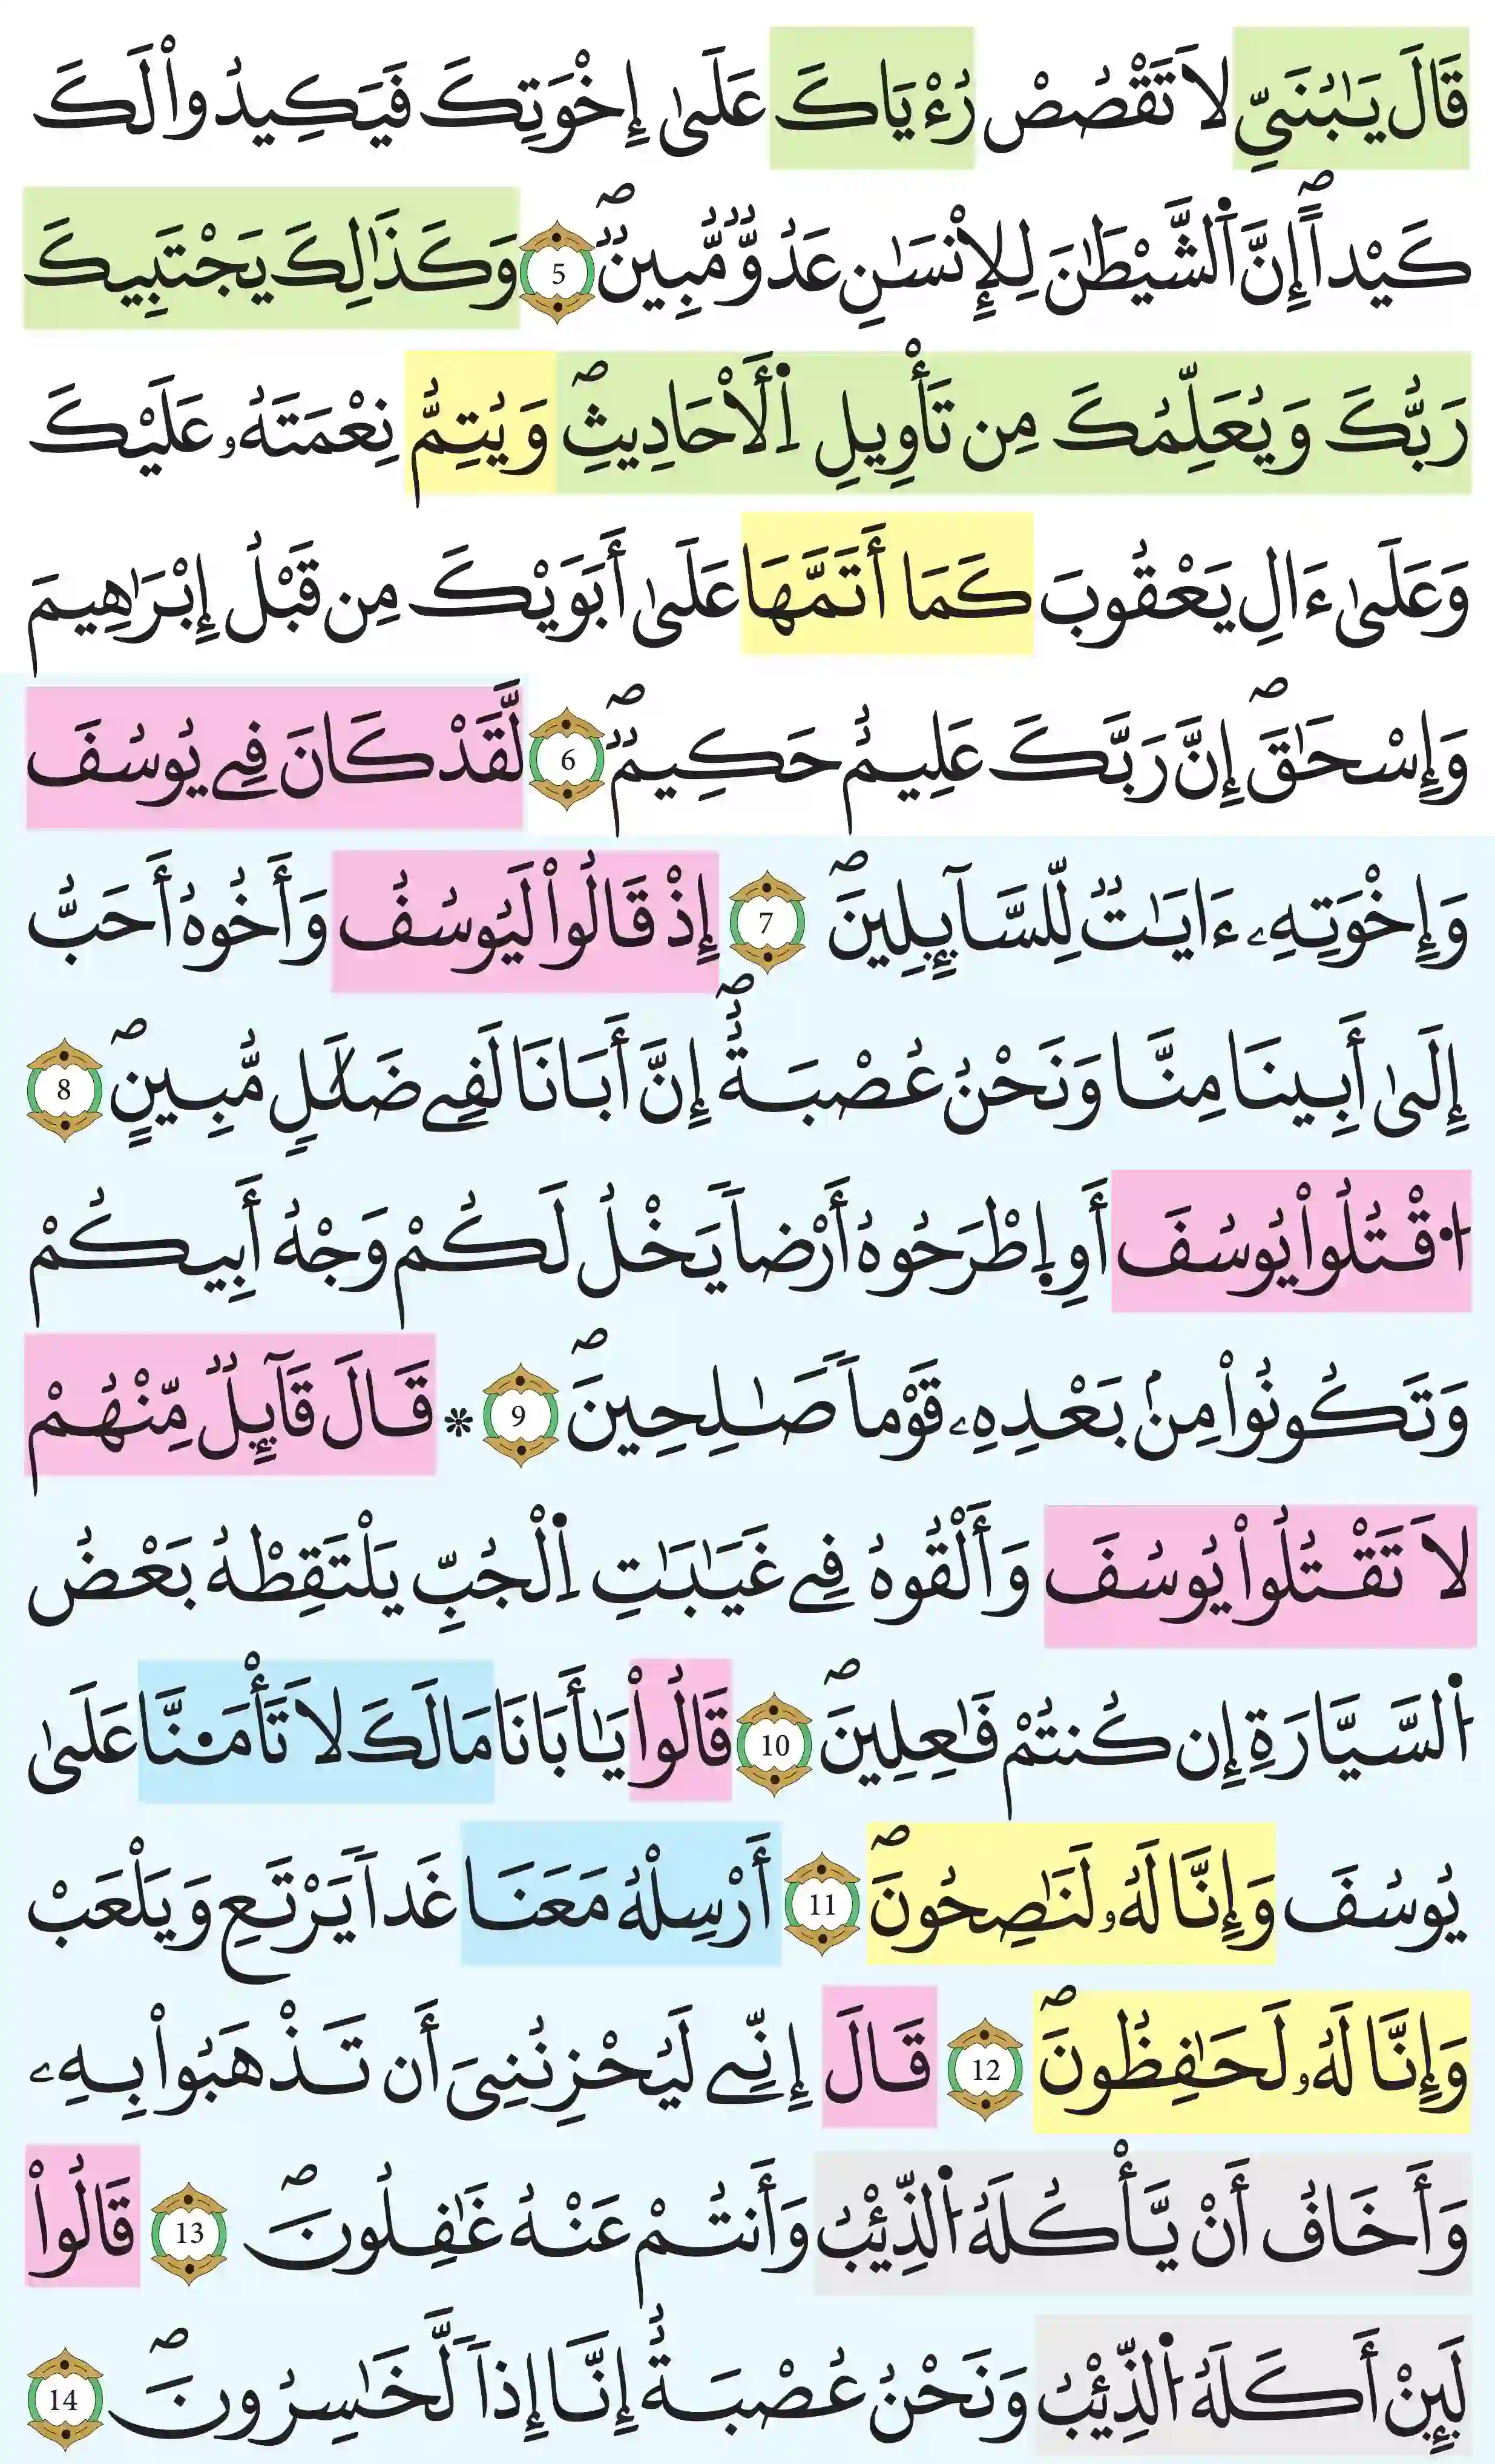 قَالَ يَٰبُنَيِّ لَا تَقْصُصْ رُءْيَاكَ عَلَىٰ إِخْوَتِكَ فَيَكِيدُواْ لَكَ
كَيْداًۖ إِنَّ اَ۬لشَّيْطَٰنَ لِلْإِنسَٰنِ عَدُوّٞ مُّبِينٞۖ 5 وَكَذَٰلِكَ يَجْتَبِيكَ
رَبُّكَ وَيُعَلِّمُكَ مِن تَأْوِيلِ اِ۬لْأَحَادِيثِۖ وَيُتِمُّ نِعْمَتَهُۥ عَلَيْكَ
وَعَلَىٰ ءَالِ يَعْقُوبَ كَمَا أَتَمَّهَا عَلَىٰ أَبَوَيْكَ مِن قَبْلُ إِبْرَٰهِيمَ
وَإِسْحَٰقَۖ إِنَّ رَبَّكَ عَلِيمٌ حَكِيمٞۖ 6 لَّقَدْ كَانَ فِے يُوسُفَ
وَإِخْوَتِهِۦ ءَايَٰتٞ لِّلسَّآئِلِينَۖ 7 إِذْ قَالُواْ لَيُوسُفُ وَأَخُوهُ أَحَبُّ
إِلَىٰ أَبِينَا مِنَّا وَنَحْنُ عُصْبَةٌۖ إِنَّ أَبَانَا لَفِے ضَلَٰلٖ مُّبِينٍ 8
اُ۟قْتُلُواْ يُوسُفَ أَوِ اِ۪طْرَحُوهُ أَرْضاٗ يَخْلُ لَكُمْ وَجْهُ أَبِيكُمْ
وَتَكُونُواْ مِنۢ بَعْدِهِۦ قَوْماٗ صَٰلِحِينَۖ 9 * قَالَ قَآئِلٞ مِّنْهُمْ
لَا تَقْتُلُواْ يُوسُفَ وَأَلْقُوهُ فِے غَيَٰبَٰتِ اِ۬لْجُبِّ يَلْتَقِطْهُ بَعْضُ
اُ۬لسَّيَّارَةِ إِن كُنتُمْ فَٰعِلِينَۖ 10 قَالُواْ يَٰأَبَانَا مَا لَكَ لَا تَأْمَ۬نَّا عَلَىٰ
يُوسُفَ وَإِنَّا لَهُۥ لَنَٰصِحُونَۖ 11 أَرْسِلْهُ مَعَنَا غَداٗ يَرْتَعِ وَيَلْعَبْ
وَإِنَّا لَهُۥ لَحَٰفِظُونَۖ 12 قَالَ إِنِّے لَيُحْزِنُنِيَ أَن تَذْهَبُواْ بِهِۦ
وَأَخَافُ أَنْ يَّأْكُلَهُ اُ۬لذِّئْبُ وَأَنتُمْ عَنْهُ غَٰفِلُونَۖ 13 قَالُواْ
لَئِنْ أَكَلَهُ اُ۬لذِّئْبُ وَنَحْنُ عُصْبَةٌ إِنَّا إِذاٗ لَّخَٰسِرُونَۖ 14